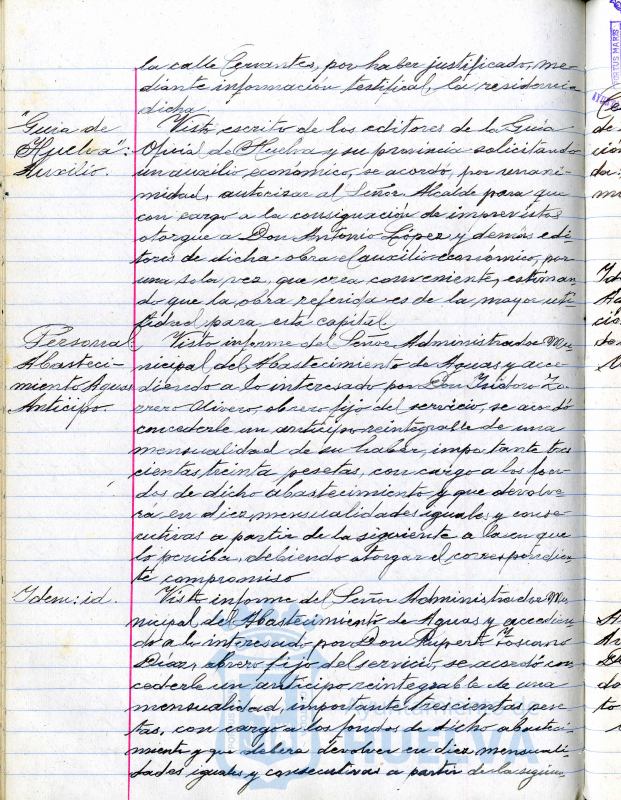 la calle Cervantes, por haber justificado, me-
diante información testifical, la residencia
dicha.
"Guia de
Huelva":
Auxilio.
Visto escrito de los editores de la Guia
Oficial de Huelva y su provincia solicitando
un auxilio económico, se acordó, por unani-
midad, autorizar al Señor Alcalde para que
con cargo a la consignación de imprevistos
otorgue a Don Antonio López y demás edi-
tores de dicha obra el auxilio economico, por
una sola vez, que crea conveniente, estiman-
do que la obra referida es de la mayor uti-
lidad para esta capital.
Personal
Abasteci-
miento Aguas
Anticipo.
Visto informe del Señor Administrador Mu-
nicipal del Abastecimiento de Aguas y acce-
diendo a lo interesado por Don Isidoro
Olivero, obrero fijo del servicio, se acordó
concederle un anticipo reintegrable de una
mensualidad de su haber, importante tres
cientas treinta pesetas, con cargo a los fon-
dos de dicho abastecimiento y que devolve
rá en diez mensualidades iguales y conse-
cutivas a partir de la siguiente a la en que
lo perciba, debiendo otorgar el correspondien
te compromiso
Idem: id.
Visto informe del Señor Administrador Mu-
nicipal del Abastecimiento de Aguas y accedien
do a lo interesado por Don Ruperto Toscano
Díaz, obrero fijo del servicio, se acordó con
cederle un anticipo reintegrable de una
mensualidad, importante trescientas pese
tas, con cargo a los fondos de dicho abasteci-
miento y que deberá devolver en diez mensuali-
dades iguales y consecutivas a partir de la siguien
HUELVA